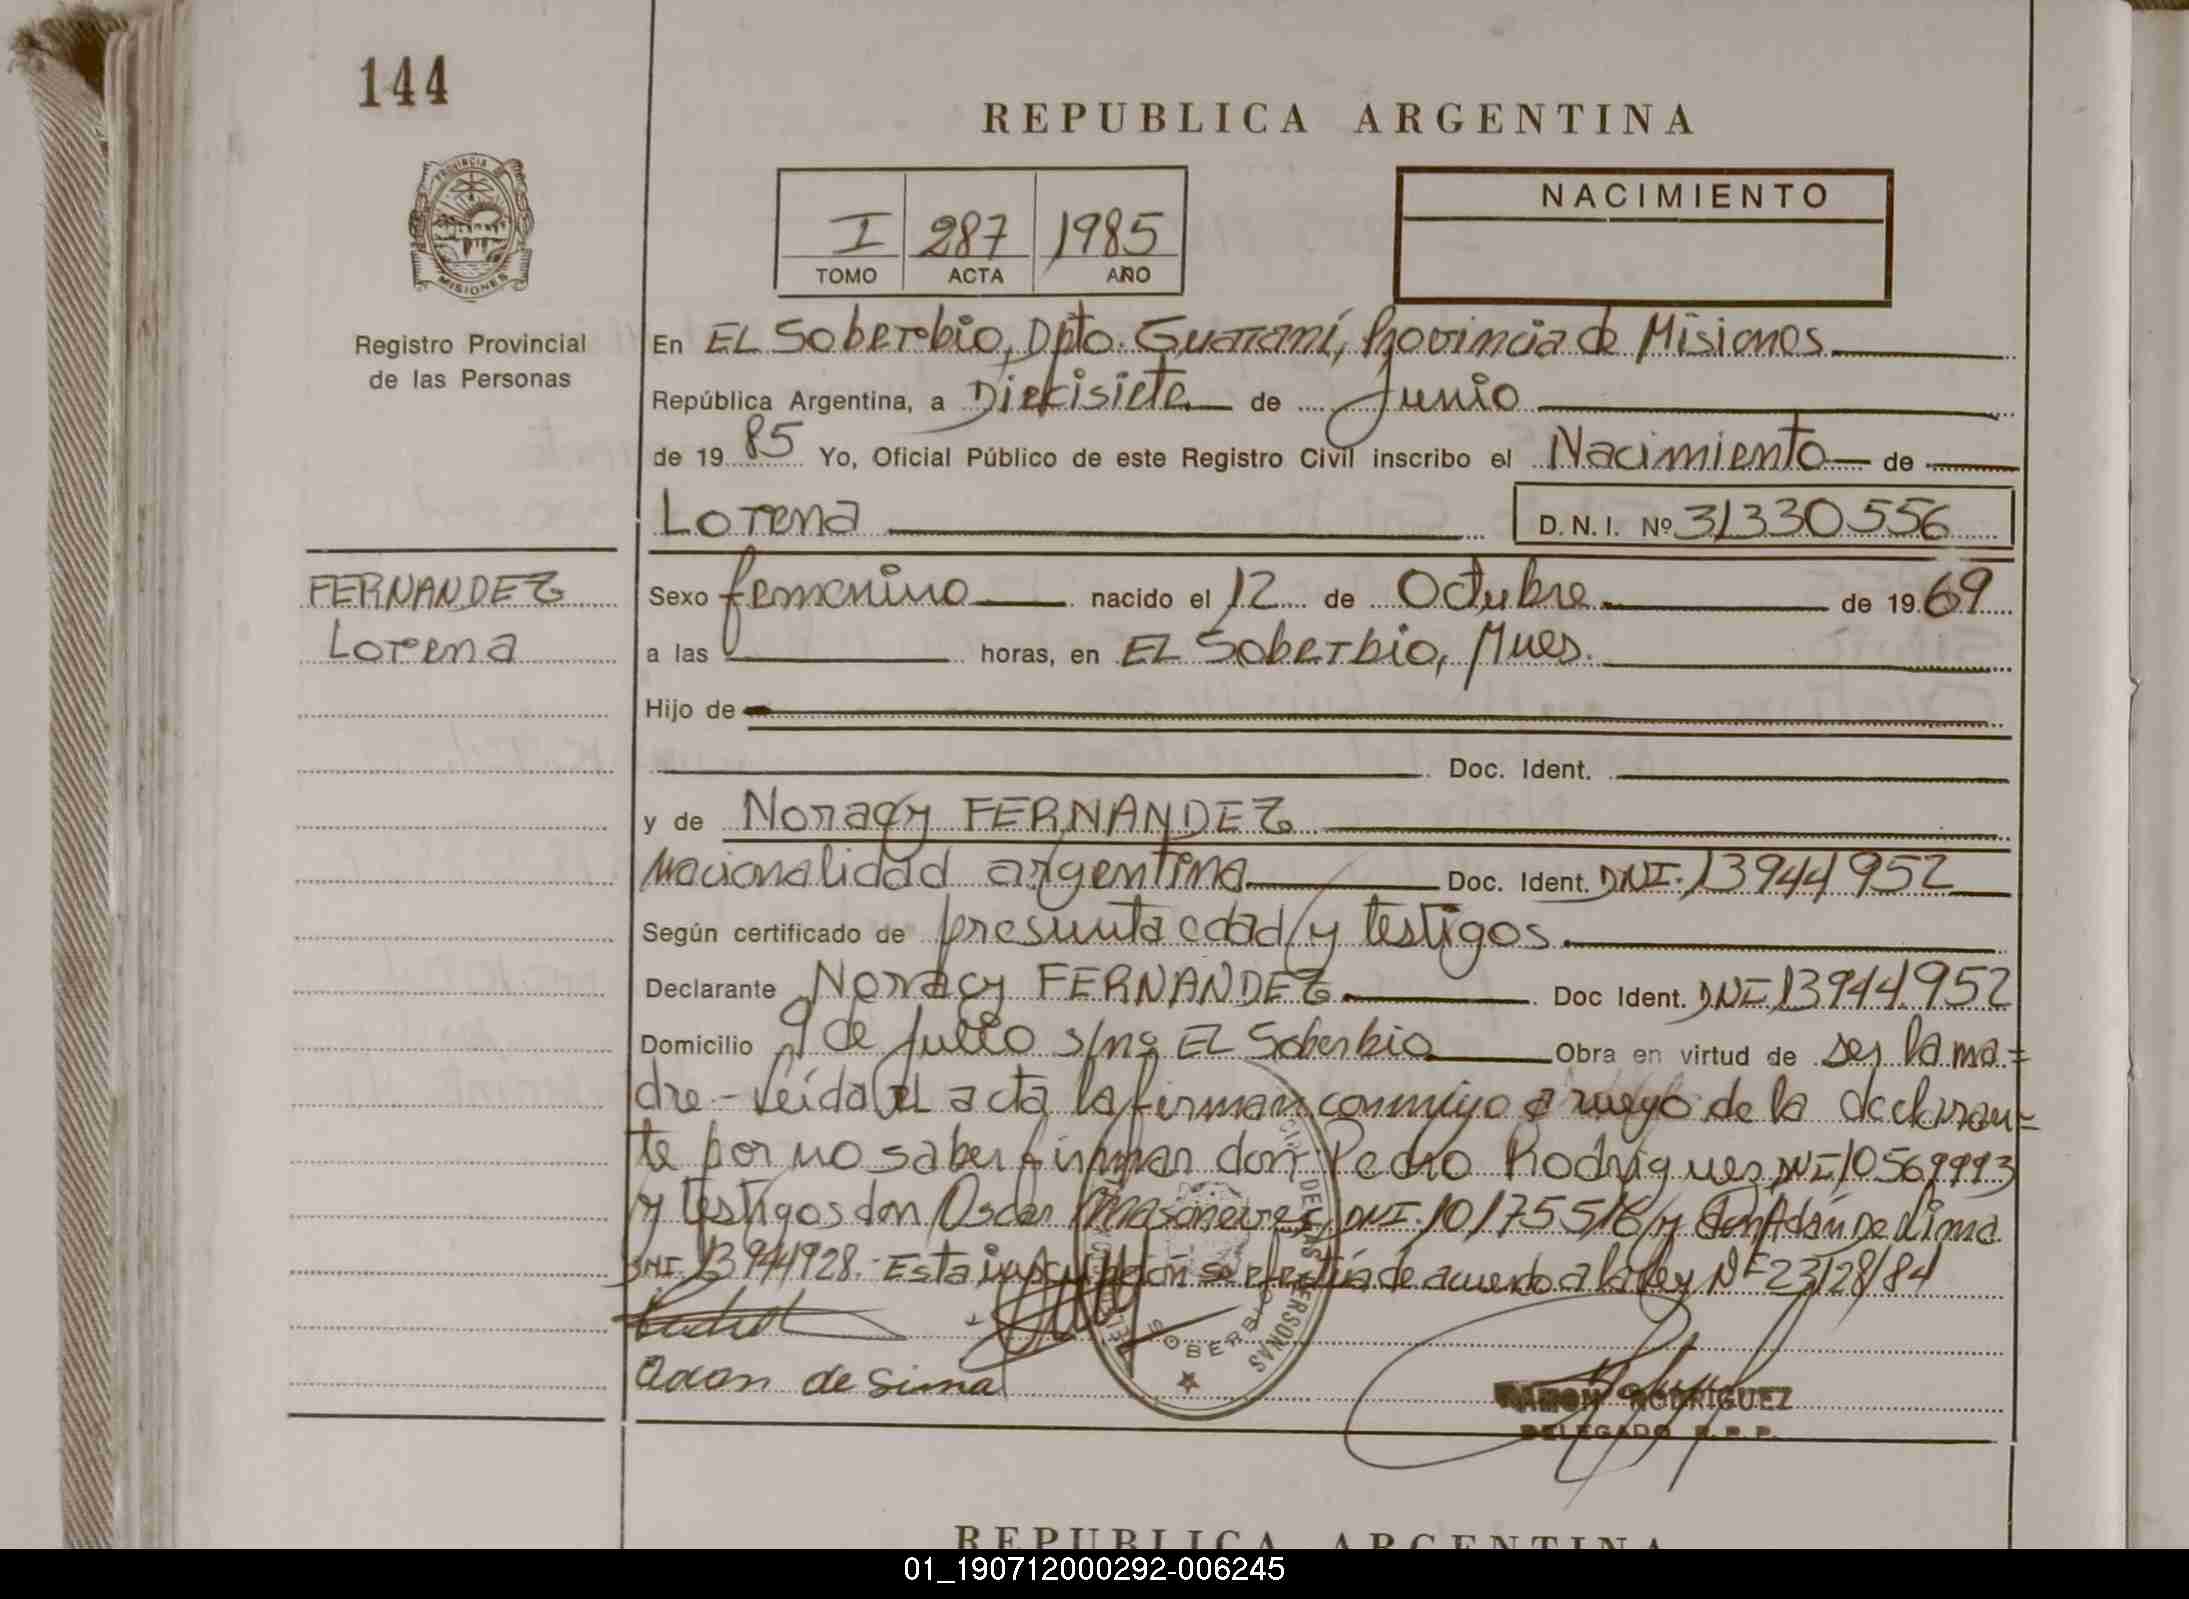 144
REPUBLICA ARGENTINA
NACIMIENTO
I 287 1985
TOMO ACTA AÑO
PROVINCIA DE
MISIONES
Registro Provincial
de las Personas
En EL Soberbio, Dpto. Guaraní, Provincia de Misiones
República Argentina, a Diecisiete de Junio
de 19 85 Yo, Oficial Público de este Registro Civil inscribo el Nacimiento de
Lorena D.N.I. Nº 31330556
FERNANDEZ
Lorena
Sexo femenino nacido el 12 de Octubre de 19 69
a las horas, en EL Soberbio, Mnes.
Hijo de
Doc. Ident.
y de Noracy FERNANDEZ
Nacionalidad argentina Doc. Ident. DNI. 13944952
Según certificado de presunta edad y testigos
Declarante Noracy FERNANDEZ Doc Ident. DNI 13944952
Domicilio 9 de Julio s/nº EL Soberbio Obra en virtud de ser la ma=
dre - Leída el acta la firman conmigo a ruego de la declaran=
te por no saber firmar don Pedro Rodrigues DNI 10569993
y testigos don Oscar DNI. 10175516 y don Adán De Lima
DNI. 13944928. Esta inscripción se efectúa de acuerdo a la Ley Nº 23128/84
Adan de Lima
DE LAS PERSONAS
SOBERBIO
RAMON RODRIGUEZ
DELEGADO R.P.P.
REPUBLICA ARGENTINA
01_190712000292-006245